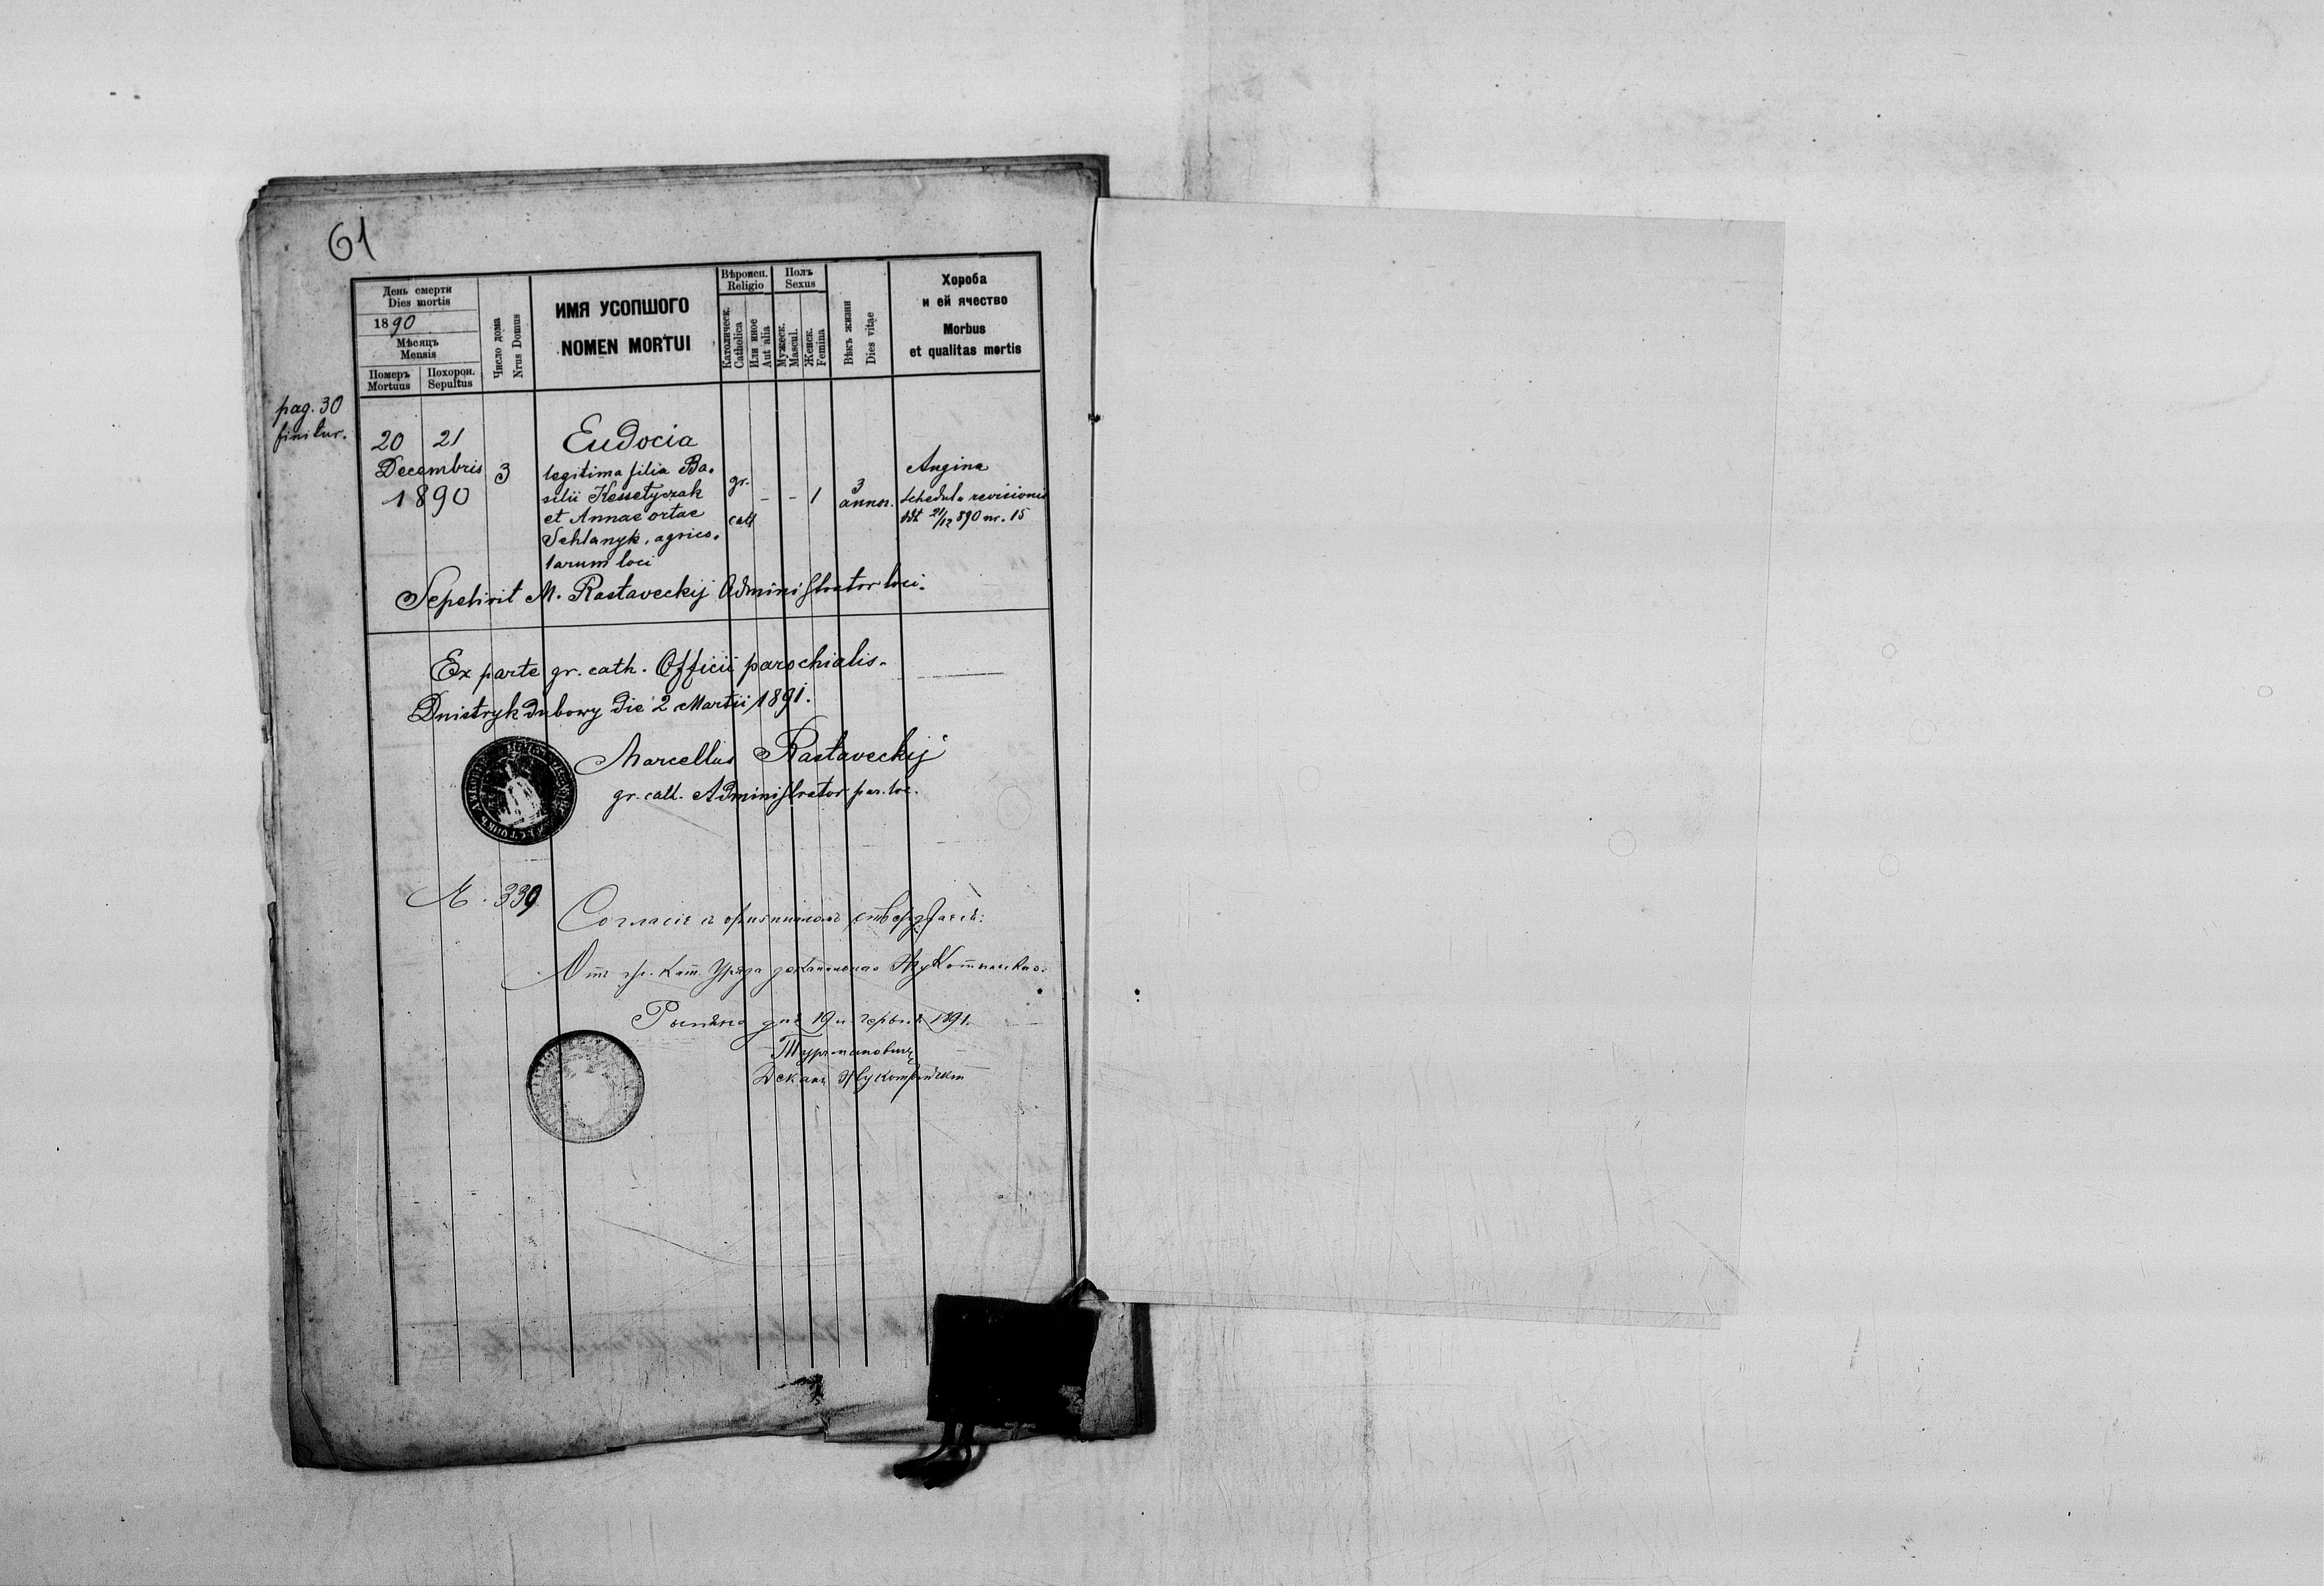 61
День смерти
Dies mortis
1890
Мѣсяць
Mensis
Померъ
Mortuus
Похорон.
Sepultus
Число дома
Nrus Domus
ИМЯ УСОПШОГО
NOMEN MORTUI
Вѣроисп.
Religio
Католическ.
Catholica
Или инное
Aut alia
Полъ
Sexus
Мужеск.
Mascul.
Женск.
Femina
Вѣкъ жизни
Dies vitae
Хороба
и ей ячество
Morbus
et qualitas mortis
pag. 30
finitur.
20 21
Decembris
1890
3
Eudocia
legitima filia Ba-
silii Kessetyczak
et Annae ortae
Schlanyk, agrico-
larum loci
gr.
cath
- - 1
3
annor.
Angina
Schedula revisionis
ddt 21/12 890 nr. 15
Sepelivit M. Rastaveckij Administrator loci.
Ex parte gr. cath. Officii parochialis.
Dnistryk dubowy die 2 Martii 1891.
Marcellus Rastaveckij
gr. cath. Administrator par. loc.
N. 339
Согласіє съ оригиналомъ ствердѣаєсѣ:
Отъ гр. кат. Уряда деканального Жукотинского.
дня 19 червня 1891.
Деканъ